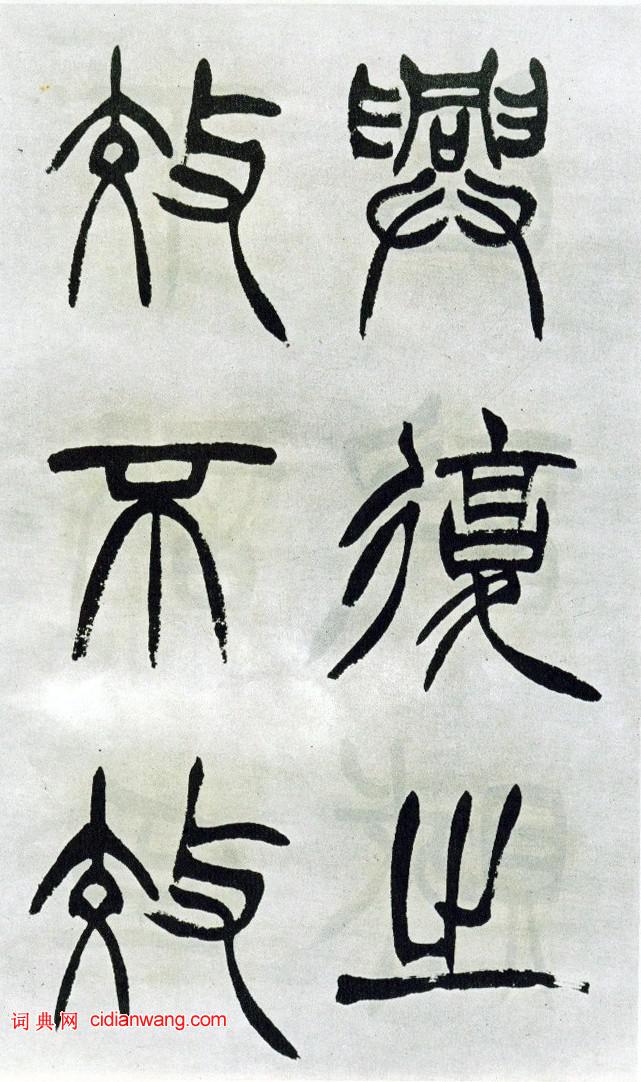 興復之
效不效
词典网 cidianwang.com